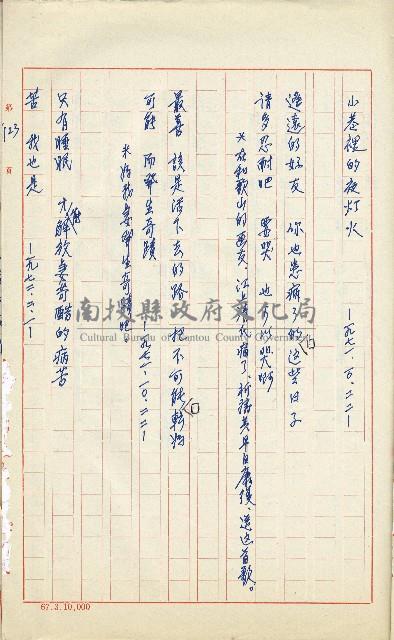 小巷裡的夜灯火
—一九七一、一〇、二二—
遙遠的好友 你也患病了的這些日子
請多忍耐吧 要哭 也可以哭啊
※在和歌山的西友、江上 病了、祈禱 早日康復、送這首歌。
最善 該是活下去的路 把不可能轉為
可能 而發生奇蹟
—一九七一、一〇、二二—
※給我妻發生奇蹟吧
只有睡眠 才能解放妻奇酷的病苦
苦 我也是
—一九七二、二、一—
第 123 頁
67.3.10,000
南投縣政府文化局
Cultural Bureau of Nantou County Government